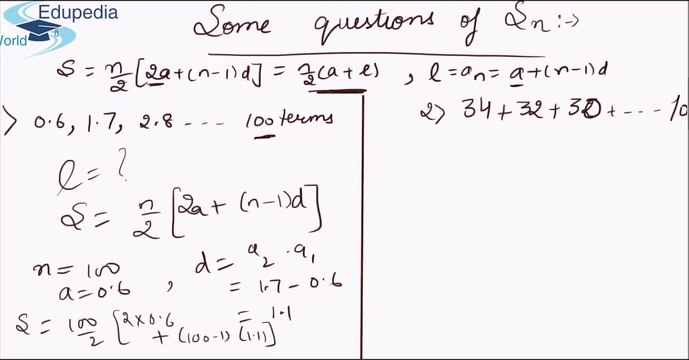 Edupedia
World
Some questions of Sn:-
S = n/2 [2a+(n-1)d] = n/2 (a+l) , l = an = a+(n-1)d
> 0.6, 1.7, 2.8 ---- 100 terms
l = ?
S = n/2 [2a + (n-1)d]
n = 100
a = 0.6 , d = a2 - a1
= 1.7 - 0.6
= 1.1
S = 100/2 [2×0.6 + (100-1)(1.1)]
2> 34+32+30+--- 10